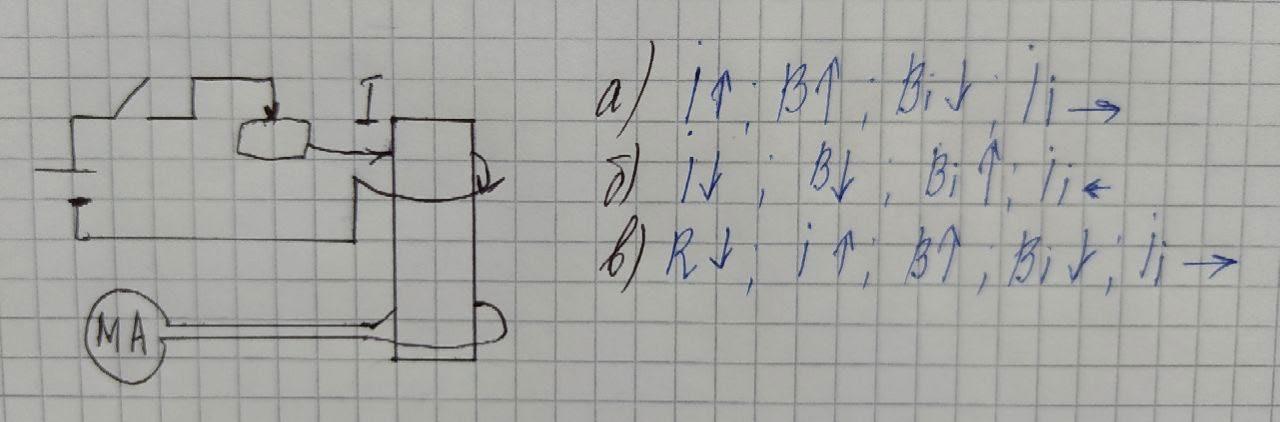 I
MA
а) i↑; B↑; Bi↓; Ii→
б) i↓; B↓; Bi↑; Ii←
в) R↓; i↑; B↑; Bi↓; Ii→